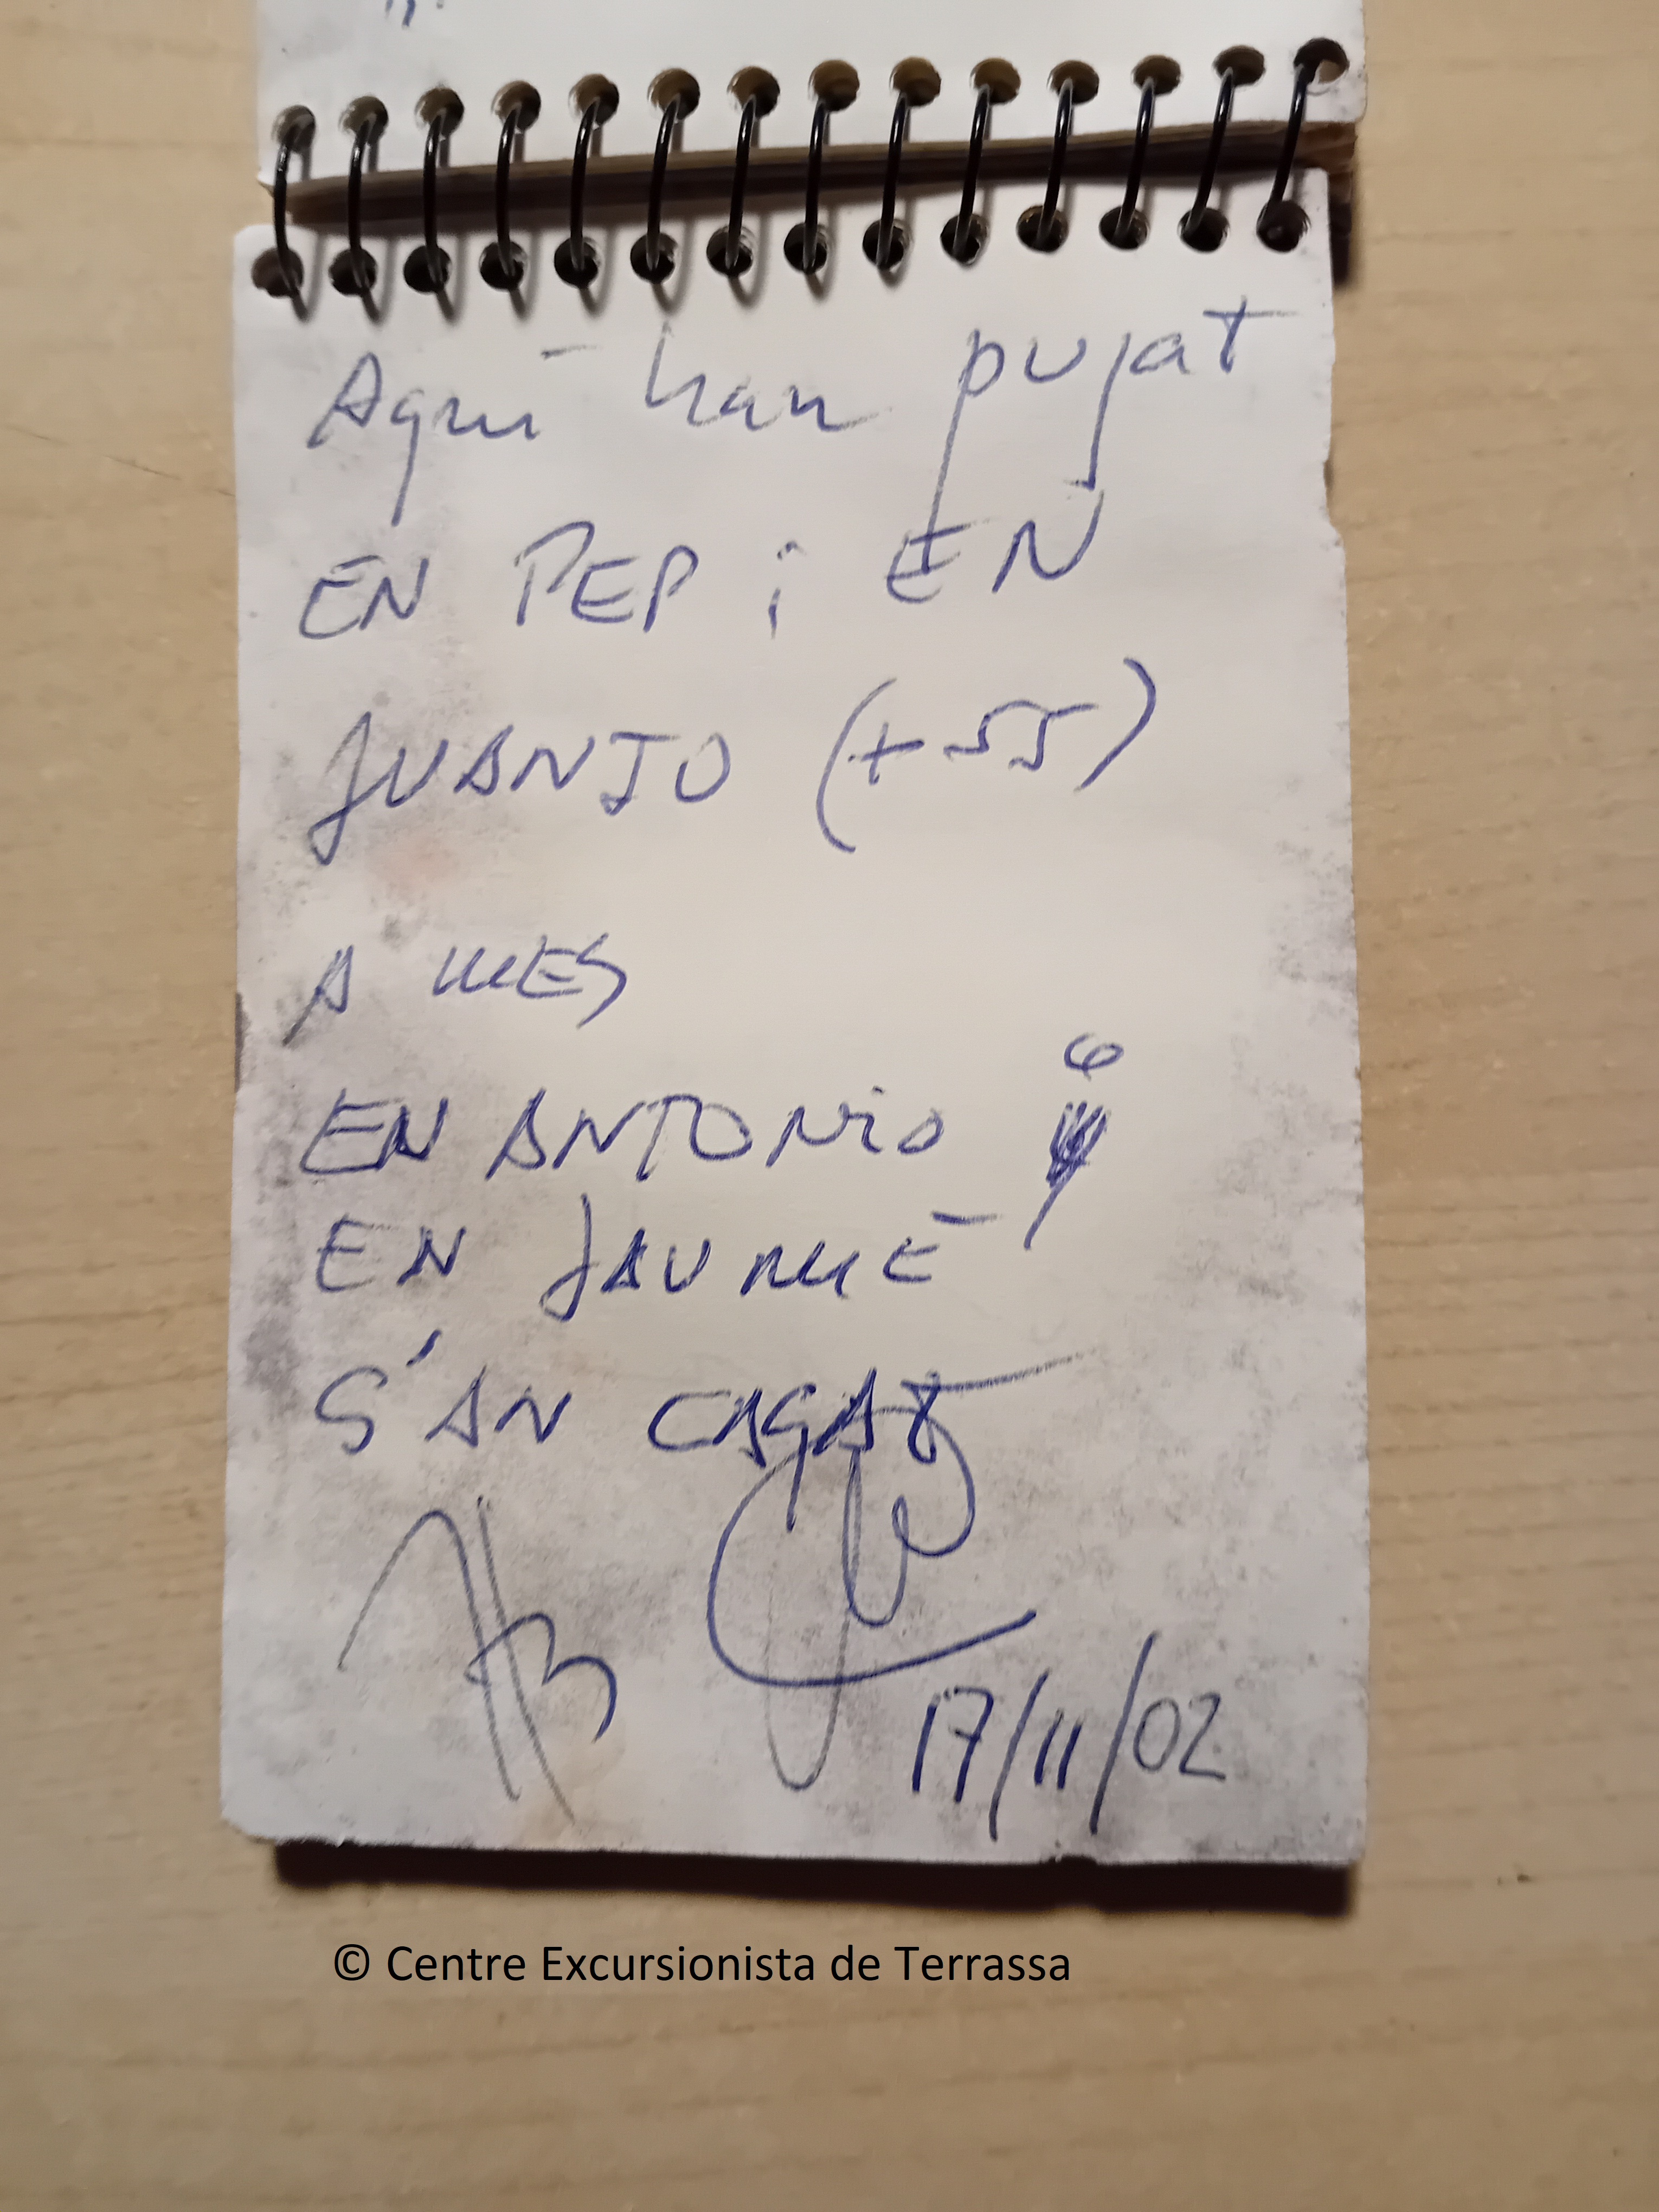 Aquí han pujat
EN PEP i EN
JUANJO (+55)
A MES
EN ANTONIO i
EN JAUME
S'AN CAGAT
17/11/02
© Centre Excursionista de Terrassa